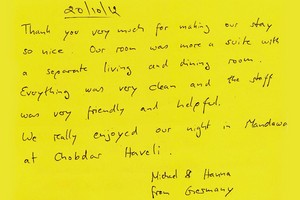 20/10/12
Thank you very much for making our stay
so nice. Our room was more a suite with
a separate living and dining room.
Everything was very clean and the staff
was very friendly and helpful.
We really enjoyed our night in Mandawa
at Chobdar Haveli.
Michael & Hanna
from Germany